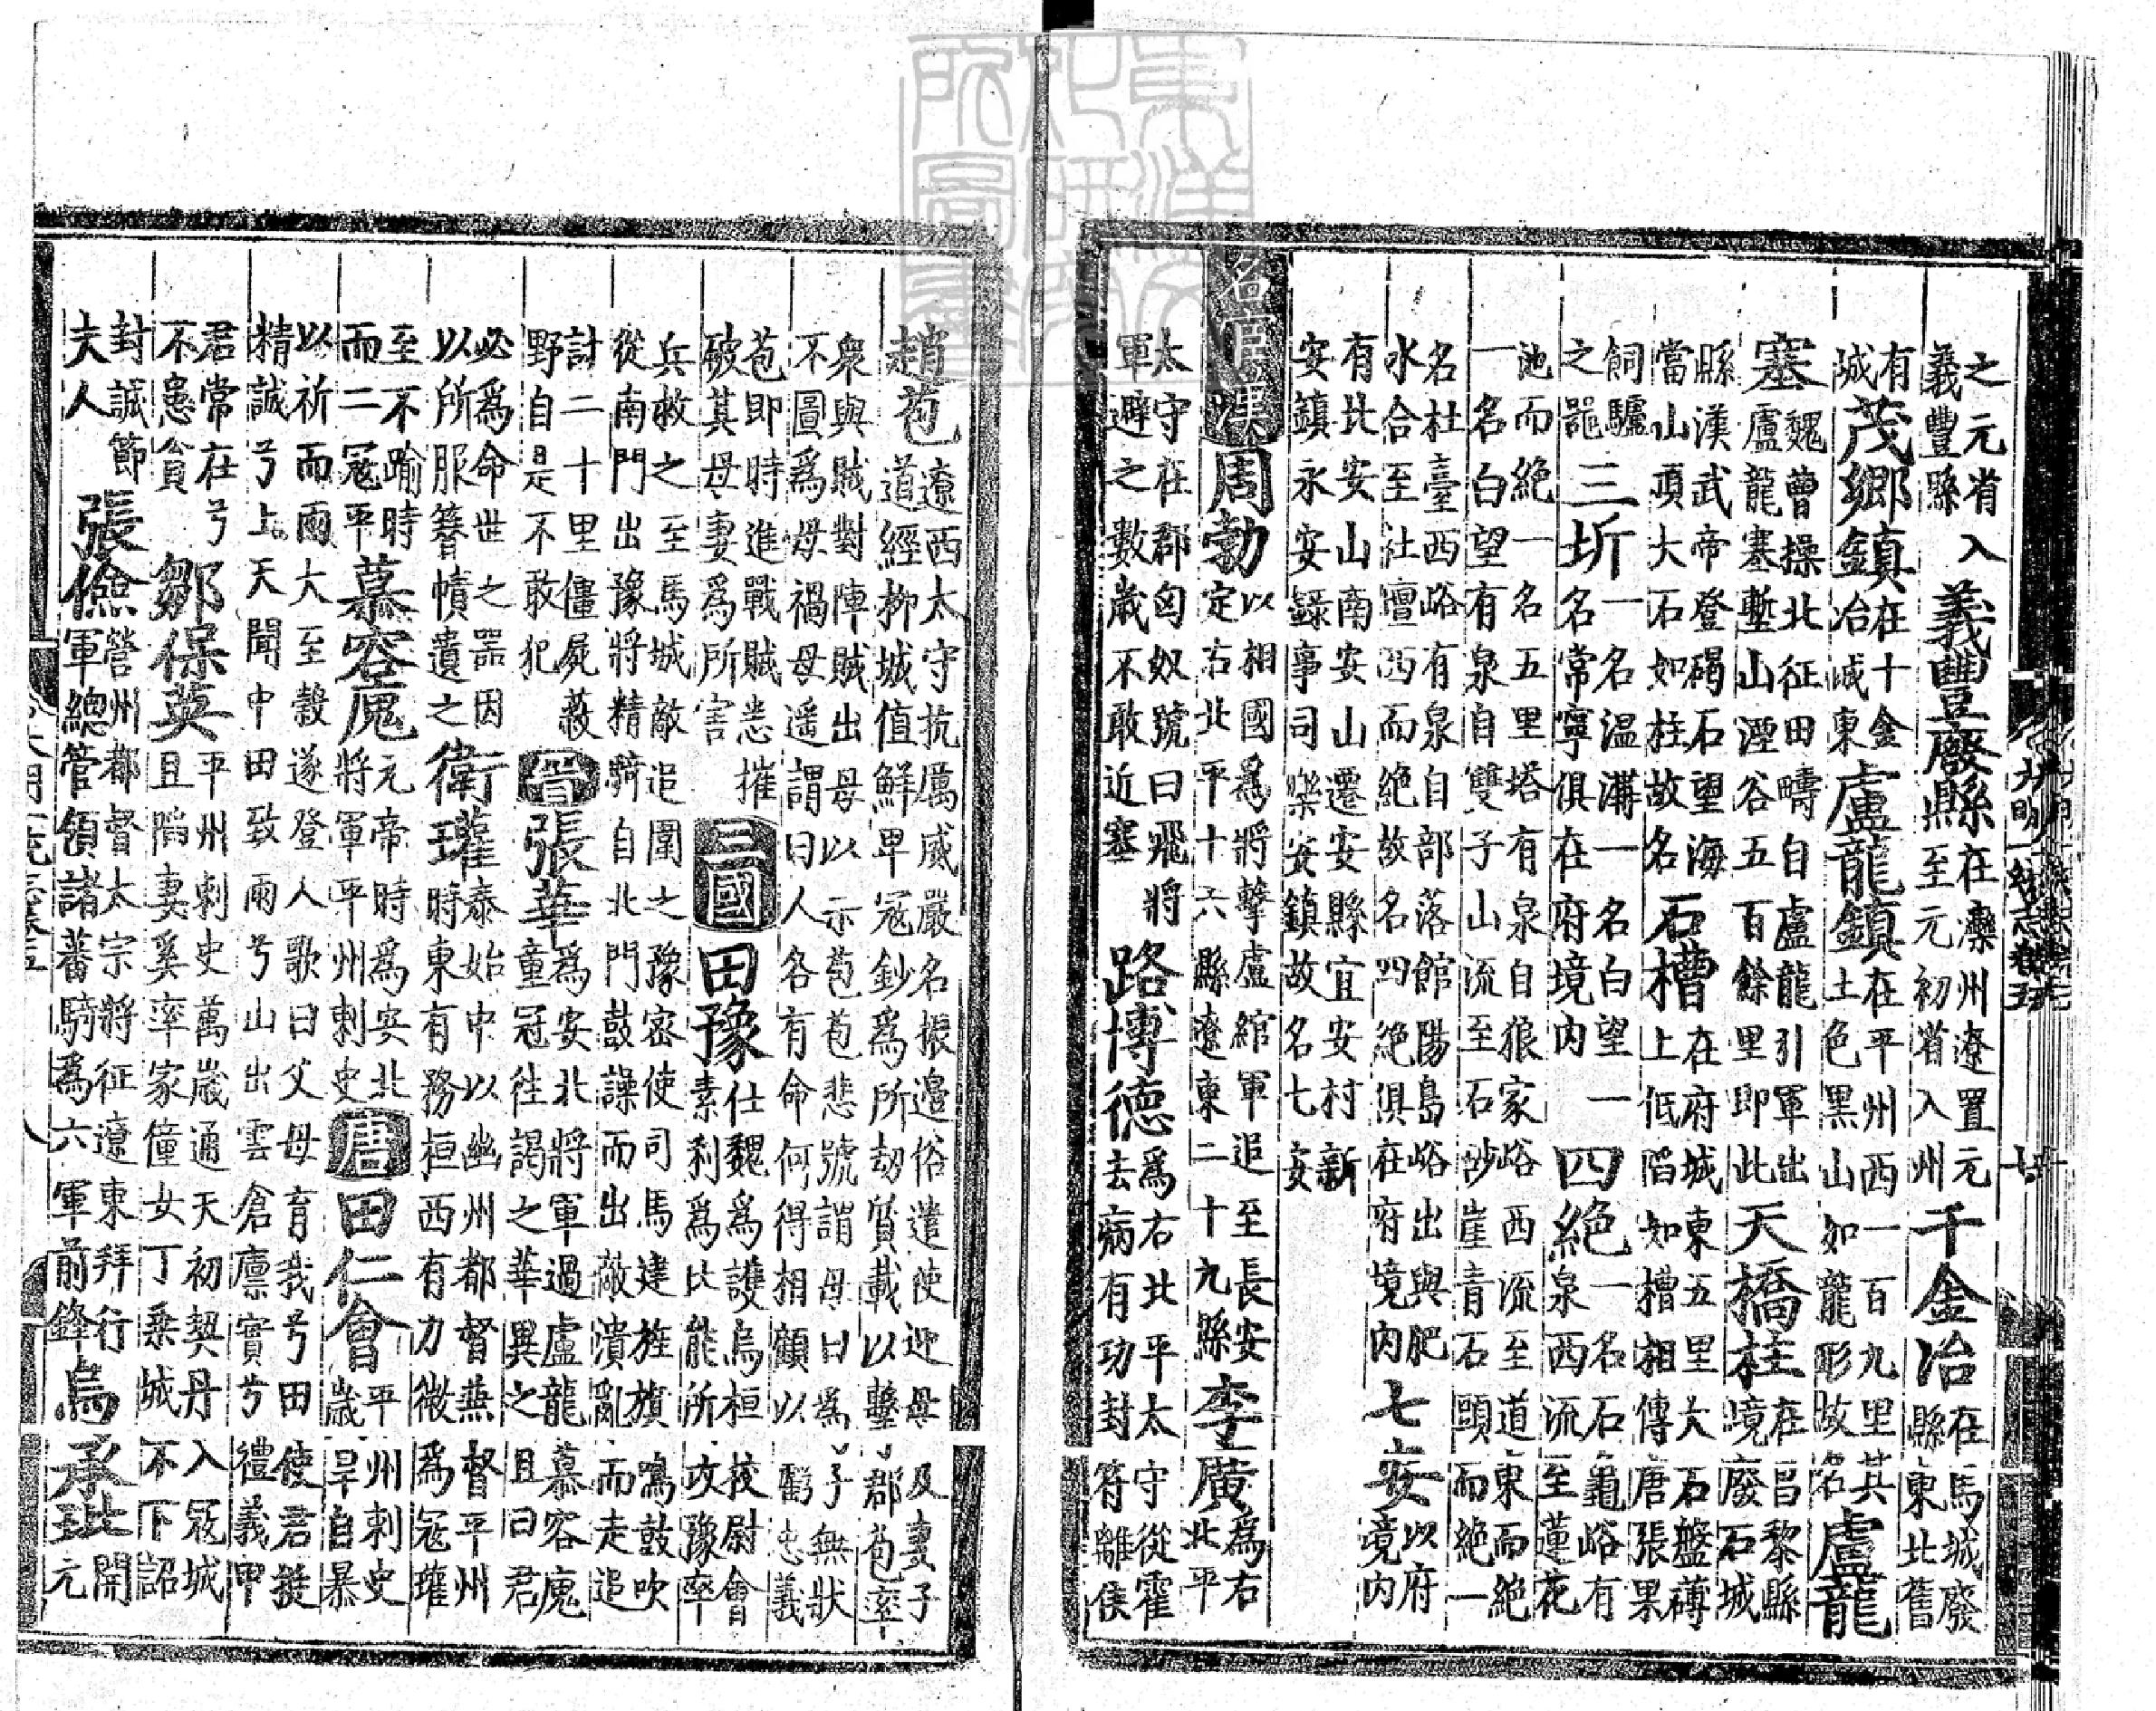 之元省入義豐縣義豐廢縣在灤州遼置元至元初省入州千金冶在馬城廢縣東北舊
有城茂鄉鎮在十金冶城東盧龍鎮在平州西一百九里其土色黑山如龍形故名盧龍
塞魏曹操北征田疇自盧龍引軍出盧龍塞塹山湮谷五百餘里即此天橋柱在昌黎縣境廢石城
縣漢武帝登碣石望海當山頂大石如柱故名石槽在府城東五里大石盤礡上低陷如槽相傳唐張果
飼驢之器三圻一名温溝一名白望一名常寧俱在府境内四絶一名石龜峪有泉西流至蓮花
池而絶一名五里塔有泉自狼家峪西流至道東而絶一名白望有泉自雙子山流至石砂崖青石頭而絶一
名杜臺西峪有泉自部落館陽島峪出與肥水合至社壇西而絶故名四絶俱在府境内七安以府境内
有北安山南安山遷安縣宜安村新安鎮永安安錄事司樂安鎮故名七安
名宦漢周勃以相國爲將擊盧綰軍追至長安定右北平十六縣遼東二十九縣李廣爲右北平
太守在郡匈奴號曰飛將軍避之數歲不敢近塞路博德爲右北平太守從霍去病有功封符離侯
趙苞遼西太守抗厲威嚴名振邊俗遣使迎母及妻子道經柳城值鮮卑冦鈔爲所劫質載以擊郡苞率
衆與賊對陣賊出母以示苞苞悲號謂母曰爲子無狀不圖爲母禍母遥謂曰人各有命何得相顧以虧忠義
苞即時進戰賊悉摧破其母妻爲所害三國田豫仕魏爲護烏桓校尉會素利爲比能所攻豫率
兵救之至馬城敵追圍之豫密使司馬建旌旗鳴鼓吹從南門出豫將精騎自北門鼓譟而出敵潰亂而走追
計二十里僵屍蔽野自是不敢犯晉張華爲安北將軍過盧龍慕容廆童冠往謁之華異之且曰君
必爲命世之器因以所服簪幘遺之衛瓘泰始中以幽州都督燕督平州時東有務桓西有力微爲冦瓘
至不踰時而二冦平慕容廆元帝時爲安北將軍平州刺史唐田仁會平州刺史歲旱自暴
以祈而雨大至穀遂登人歌曰父母育我兮田使君挺精誠兮上天聞中田致雨兮山出雲倉廩實兮禮義申
君常在兮不患貧鄒保英平州刺史萬歲通天初契丹入冦城且陷妻奚率家僮女丁乗城不下詔
封誠節夫人張儉營州都督太宗將征遼東拜行軍總管領諸蕃騎爲六軍前鋒烏承玼開元